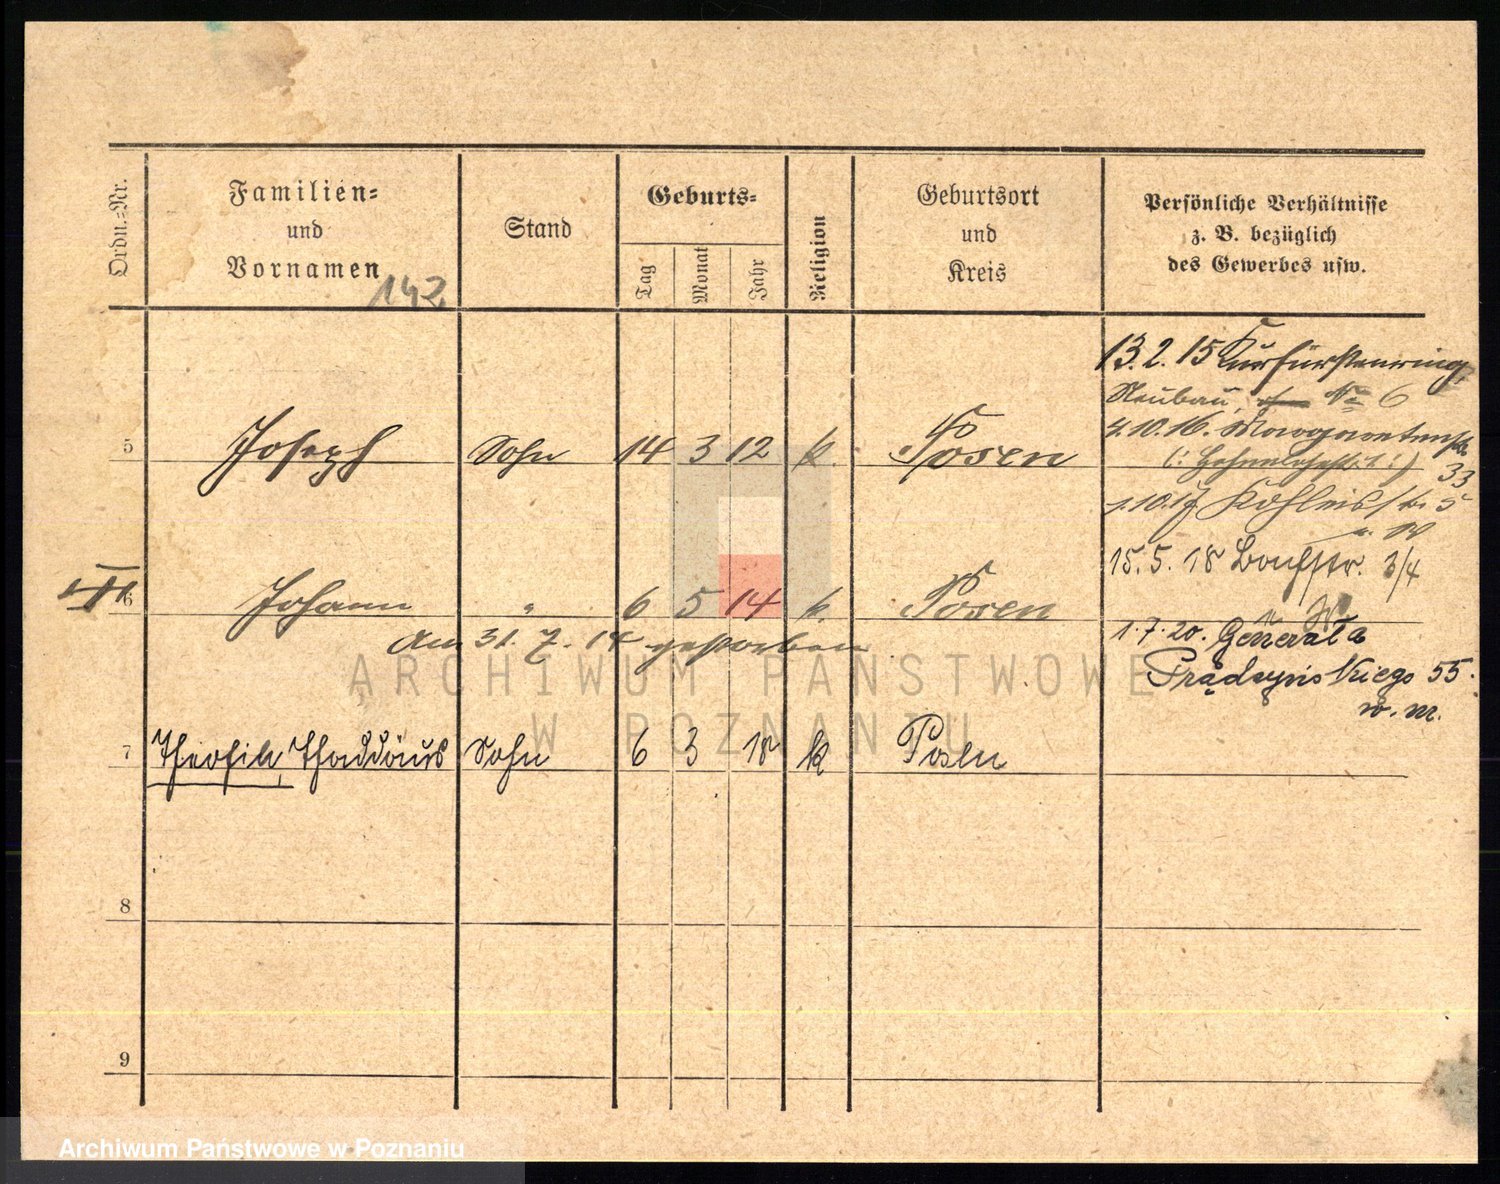 Ordn.-Nr.
Familien-
und
Vornamen
142
Stand
Geburts-
Tag
Monat
Jahr
Religion
Geburtsort
und
Kreis
Persönliche Verhältnisse
z. B. bezüglich
des Gewerbes usw.
13.2.15 Kurfürstenring
Neubau No 6
4.10.16. Margaretenstr.
33
5 Joseph Sohn 14 3 12 k. Posen
1.10.17 5
15.5.18 3/4
6 Johann " 6 5 14 k. Posen
am 31.7.14 gestorben
1.7.20. Generała
Prądzyńskiego 55.
w. m.
7 Theofil, Thaddäus Sohn 6 3 18 k Posen
8
9
ARCHIWUM PAŃSTWOWE
W POZNANIU
Archiwum Państwowe w Poznaniu